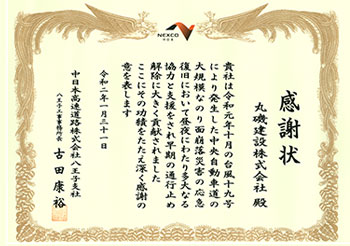 NEXCO
感謝状
丸磯建設株式会社 殿
貴社は令和元年十月の台風十九号
により発生した中央自動車道の
大規模なのり面崩落災害の応急
復旧において昼夜にわたり多大なる
協力と支援をされ早期の通行止め
解除に大きく貢献されました
ここにその功績をたたえ深く感謝の
意を表します
令和二年一月三十一日
中日本高速道路株式会社八王子支社
八王子工事事務所長
古田康裕